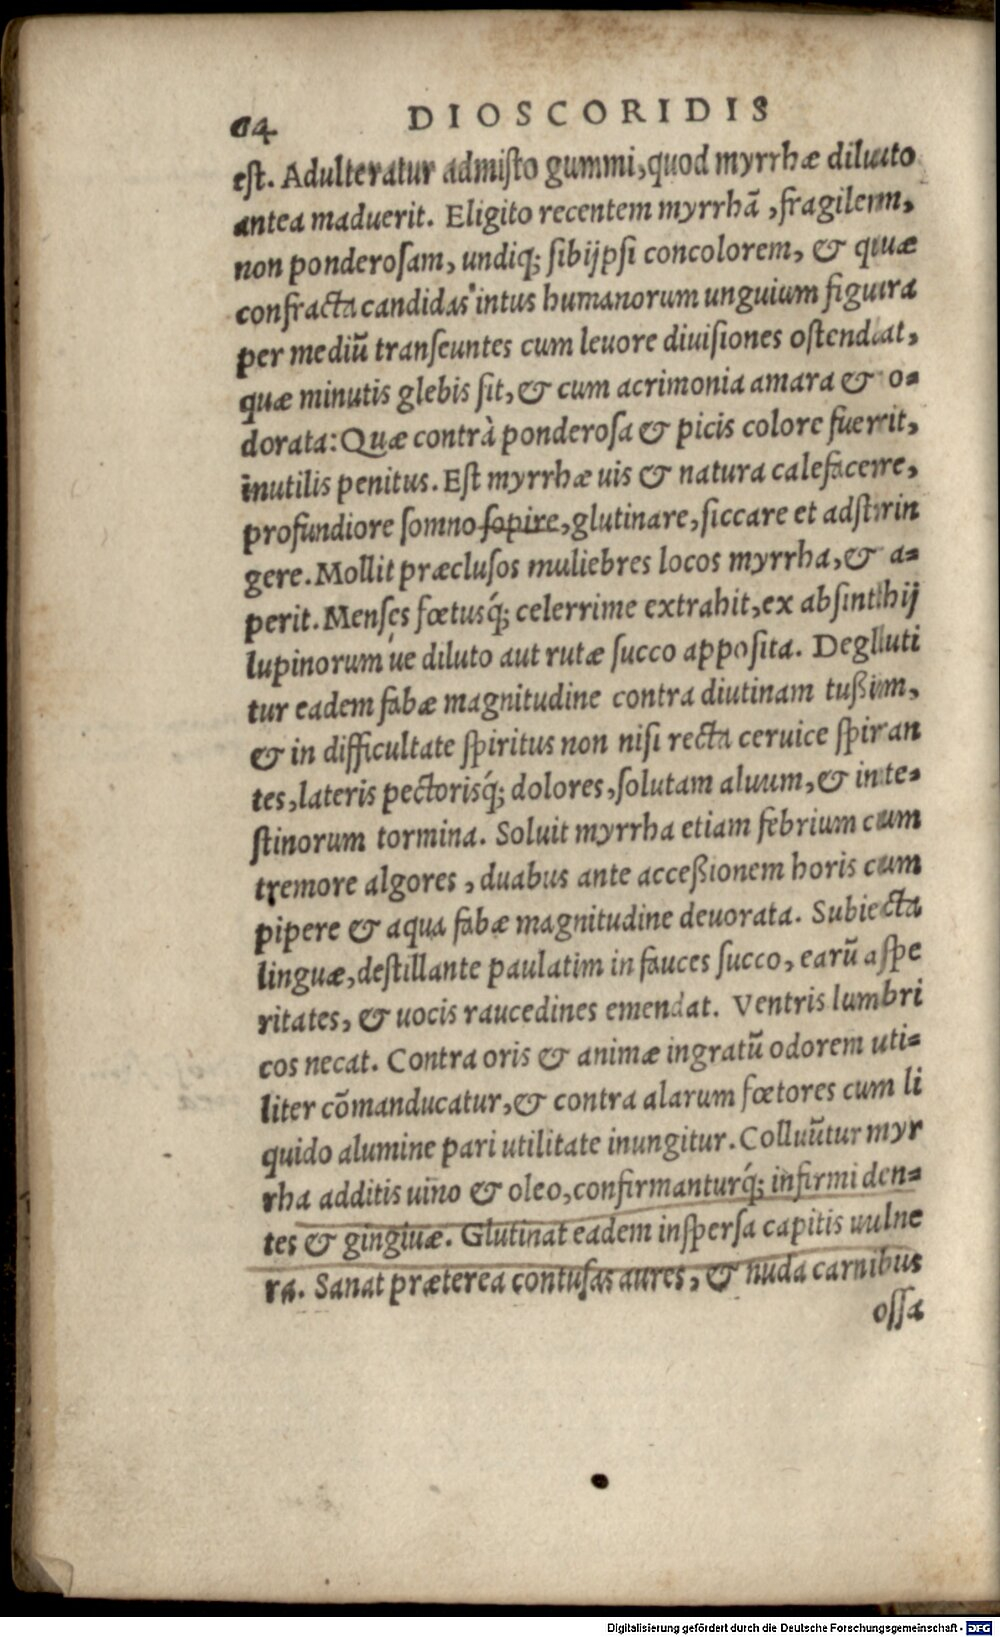 64 DIOSCORIDIS
est. Adulteratur admisto gummi, quod myrrhæ diluto
antea maduerit. Eligito recentem myrrhã, fragilem,
non ponderosam, undiq; sibijpsi concolorem, & quæ
confracta candidas intus humanorum unguium figura
per mediũ transeuntes cum leuore diuisiones ostendat,
quæ minutis glebis sit, & cum acrimonia amara & o-
dorata: Quæ contrà ponderosa & picis colore fuerit,
inutilis penitus. Est myrrhæ uis & natura calefacere,
profundiore somno sopire, glutinare, siccare et adstrin
gere. Mollit præclusos muliebres locos myrrha, & a-
perit. Menses fœtusq́; celerrime extrahit, ex absinthij
lupinorum úe diluto aut rutæ succo apposita. Degluti
tur eadem fabæ magnitudine contra diutinam tußim,
& in difficultate spiritus non nisi recta ceruice spiran
tes, lateris pectorisq́; dolores, solutam aluum, & inte-
stinorum tormina. Soluit myrrha etiam febrium cum
tremore algores, duabus ante acceßionem horis cum
pipere & aqua fabæ magnitudine deuorata. Subiecta
linguæ, destillante paulatim in fauces succo, earũ aspe
ritates, & uocis raucedines emendat. Ventris lumbri
cos necat. Contra oris & animæ ingratũ odorem uti-
liter cõmanducatur, & contra alarum fœtores cum li
quido alumine pari utilitate inungitur. Colluũtur myr
rha additis uino & oleo, confirmanturq́; infirmi den-
tes & gingiuæ. Glutinat eadem inspersa capitis uulne
ra. Sanat præterea contusas aures, & nuda carnibus
ossa
Digitalisierung gefördert durch die Deutsche Forschungsgemeinschaft - DFG